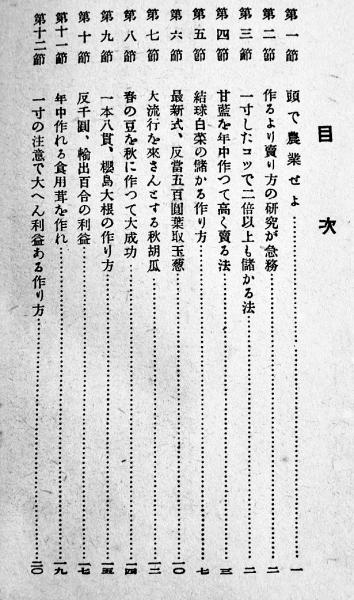 目次
第一節 頭で農業せよ……一
第二節 作るより賣り方の研究が急務……二
第三節 一寸したコツで二倍以上も儲かる法……二
第四節 甘藍を年中作つて高く賣る法……三
第五節 結球白菜の儲かる作り方……七
第六節 最新式、反當五百圓葉取玉葱……一〇
第七節 大流行を來さんとする秋胡瓜……一二
第八節 春の豆を秋に作つて大成功……一四
第九節 一本八貫、櫻島大根の作り方……一五
第十節 反千圓、輸出百合の利益……一七
第十一節 年中作れる食用茸を作れ……一九
第十二節 一寸の注意で大へん利益ある作り方……二〇